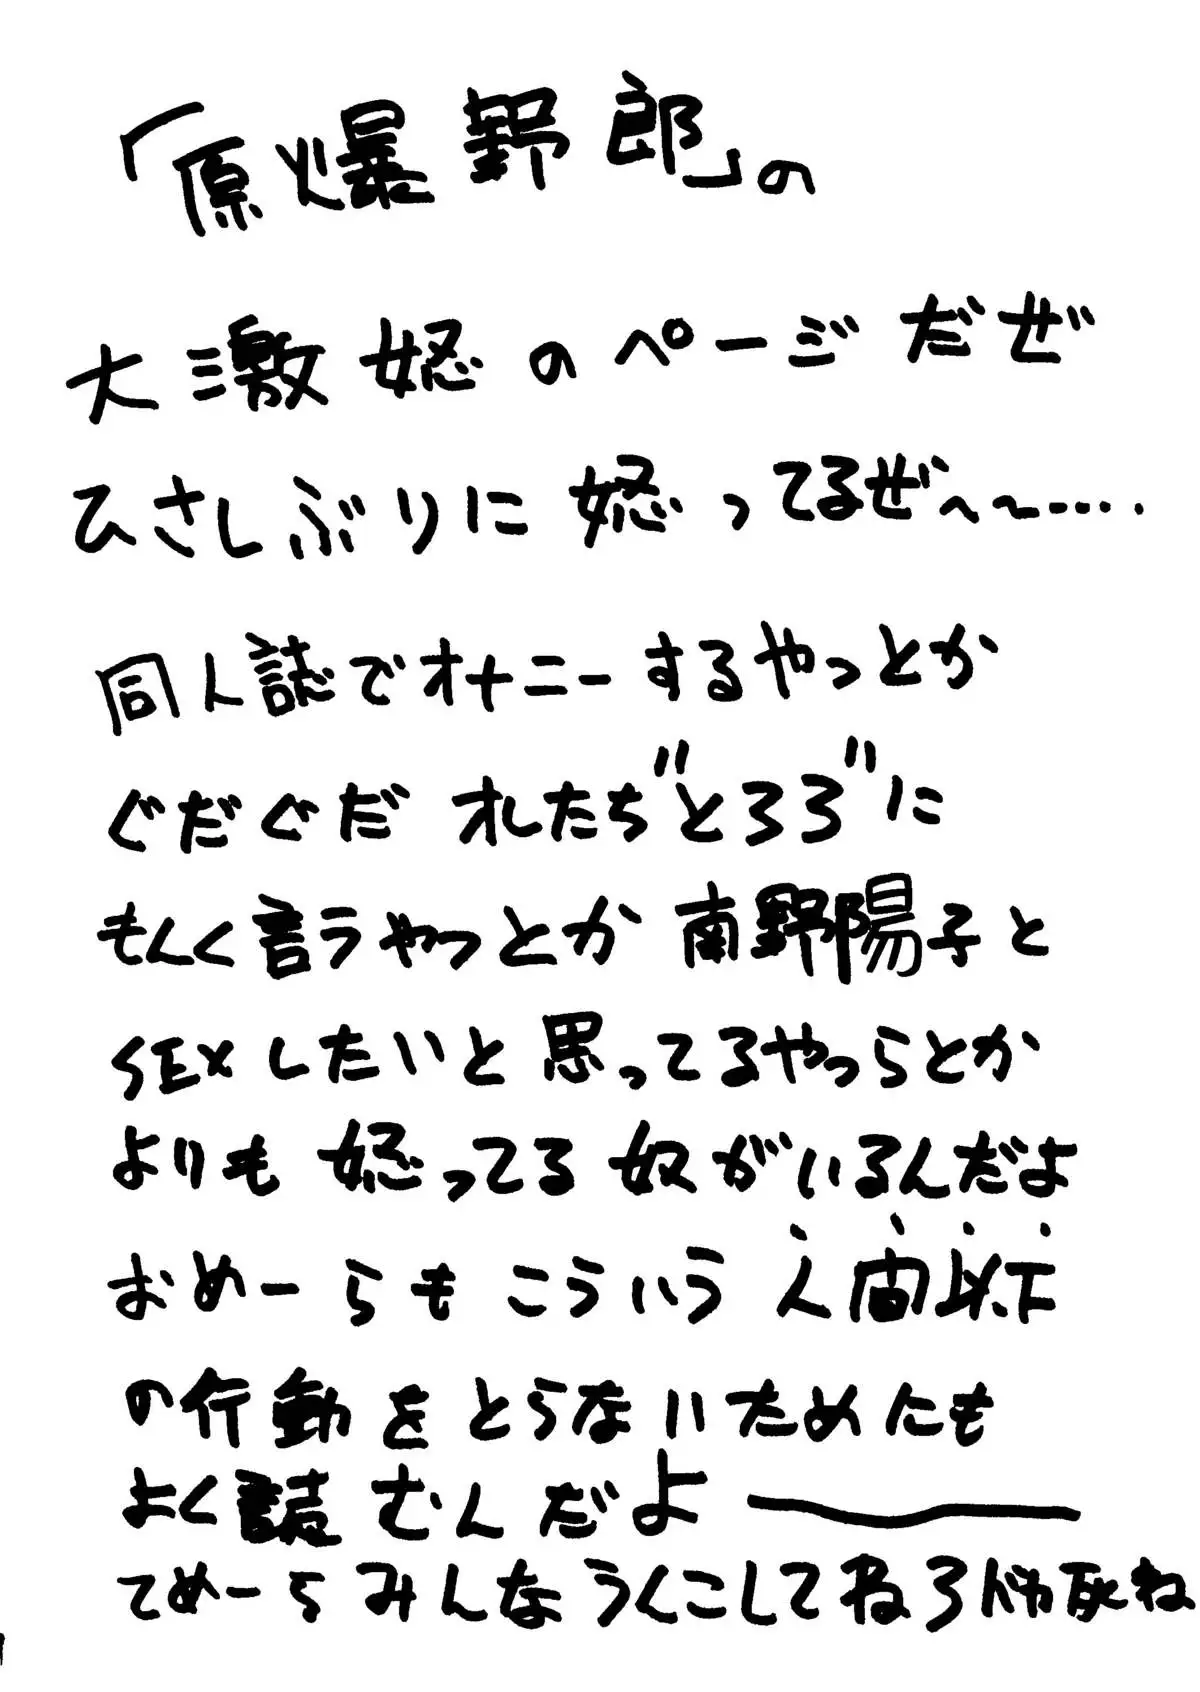 「原爆野郎」の
大激怒のページだぜ
ひさしぶりに怒ってるぜ〜〜‥‥
同人誌でオナニーするやつとか
ぐだぐだオレたち"とろろ"に
もんく言うやつとか南野陽子と
SEXしたいと思ってるやつらとか
よりも怒ってる奴がいるんだよ
おめーらもこういう人間以下
の行動をとらないためにも
よく読むんだよ――
てめーらみんなうんこしてねろバカ死ね